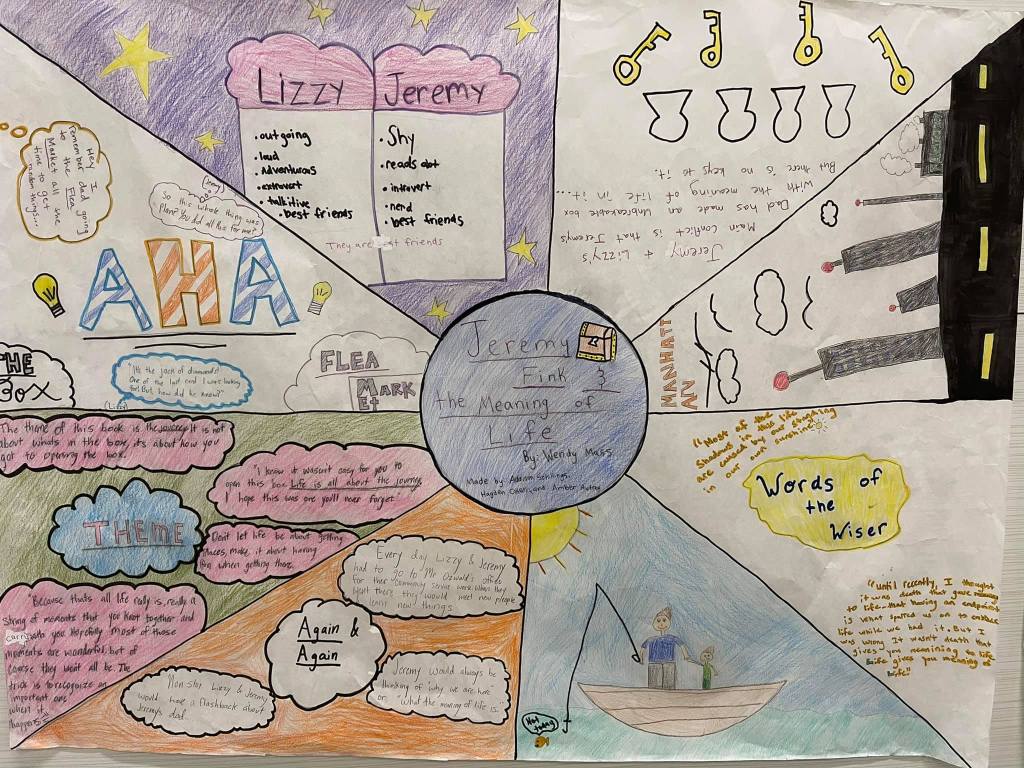 Lizzy
Jeremy
• outgoing
• loud
• Adventurous
• extrovert
• talkitive
• best friends
• Shy
• reads alot
• introvert
• nerd
• best friends
They are friends
Jeremy + Lizzy's
Main Conflict is that Jeremy's
Dad has made an Unbreakable box
with the meaning of life in it...
But there is no keys to it.
Hey I
remember dad going
to the Flea
Market all the
time to get
random things...
(Jeremy)
So this whole thing was
Plan? You did all this for me?
AHA
THE
BOX
"It's the jack of diamonds!
One of the last card I was looking
for! But how did he know?"
(Lizzy)
FLEA
MARK
Et
MANHATT
AN
Jeremy
Fink &
the Meaning of
Life
By: Wendy Mass
Made by: Addison
Hayden Owen, and Amber
The theme of this book is the Journey. It is not
about whats in the box, its about how you
got to opening the box.
"I know it wasen't easy for you to
open this box. Life is all about the journey,
I hope this was one you'll never forget."
THEME
Dont let life be about getting
places, make it about having
fun when getting there.
"Because thats all life really is, really a
string of moments that you knot together and
carry with you. Hopefully most of those
moments are wonderful, but of
course they wont all be. The
trick is to recognize an
important one
when it
happens."
Every day Lizzy & Jeremy
had to go to Mr Ozwald's office
for ther community service work. When they
went there they would meet new people
learn new things.
Again &
Again
Non stop Lizzy & Jeremy
would have a flashback about
Jeremys dad.
Jeremy would always be
thinking of why we are here
or "What the meaning of life is."
"Most of the
Shadows in this life
are caused by our standing
in our own sunshine"
Words of
the
Wiser
"Until recently, I thought
it was death that gave meaning
to life-that having an endpoint
is what spurres us on to embrace
life while we had it. But I
was wrong. It wasn't death that
gives you meaining to life.
Life gives you meaning of
life."
Not
today